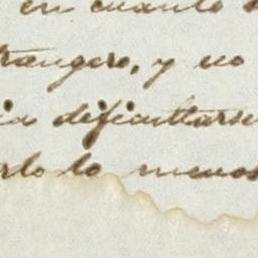 en cuanto
trangero, y no
ia dificultarse
rlo lo menos